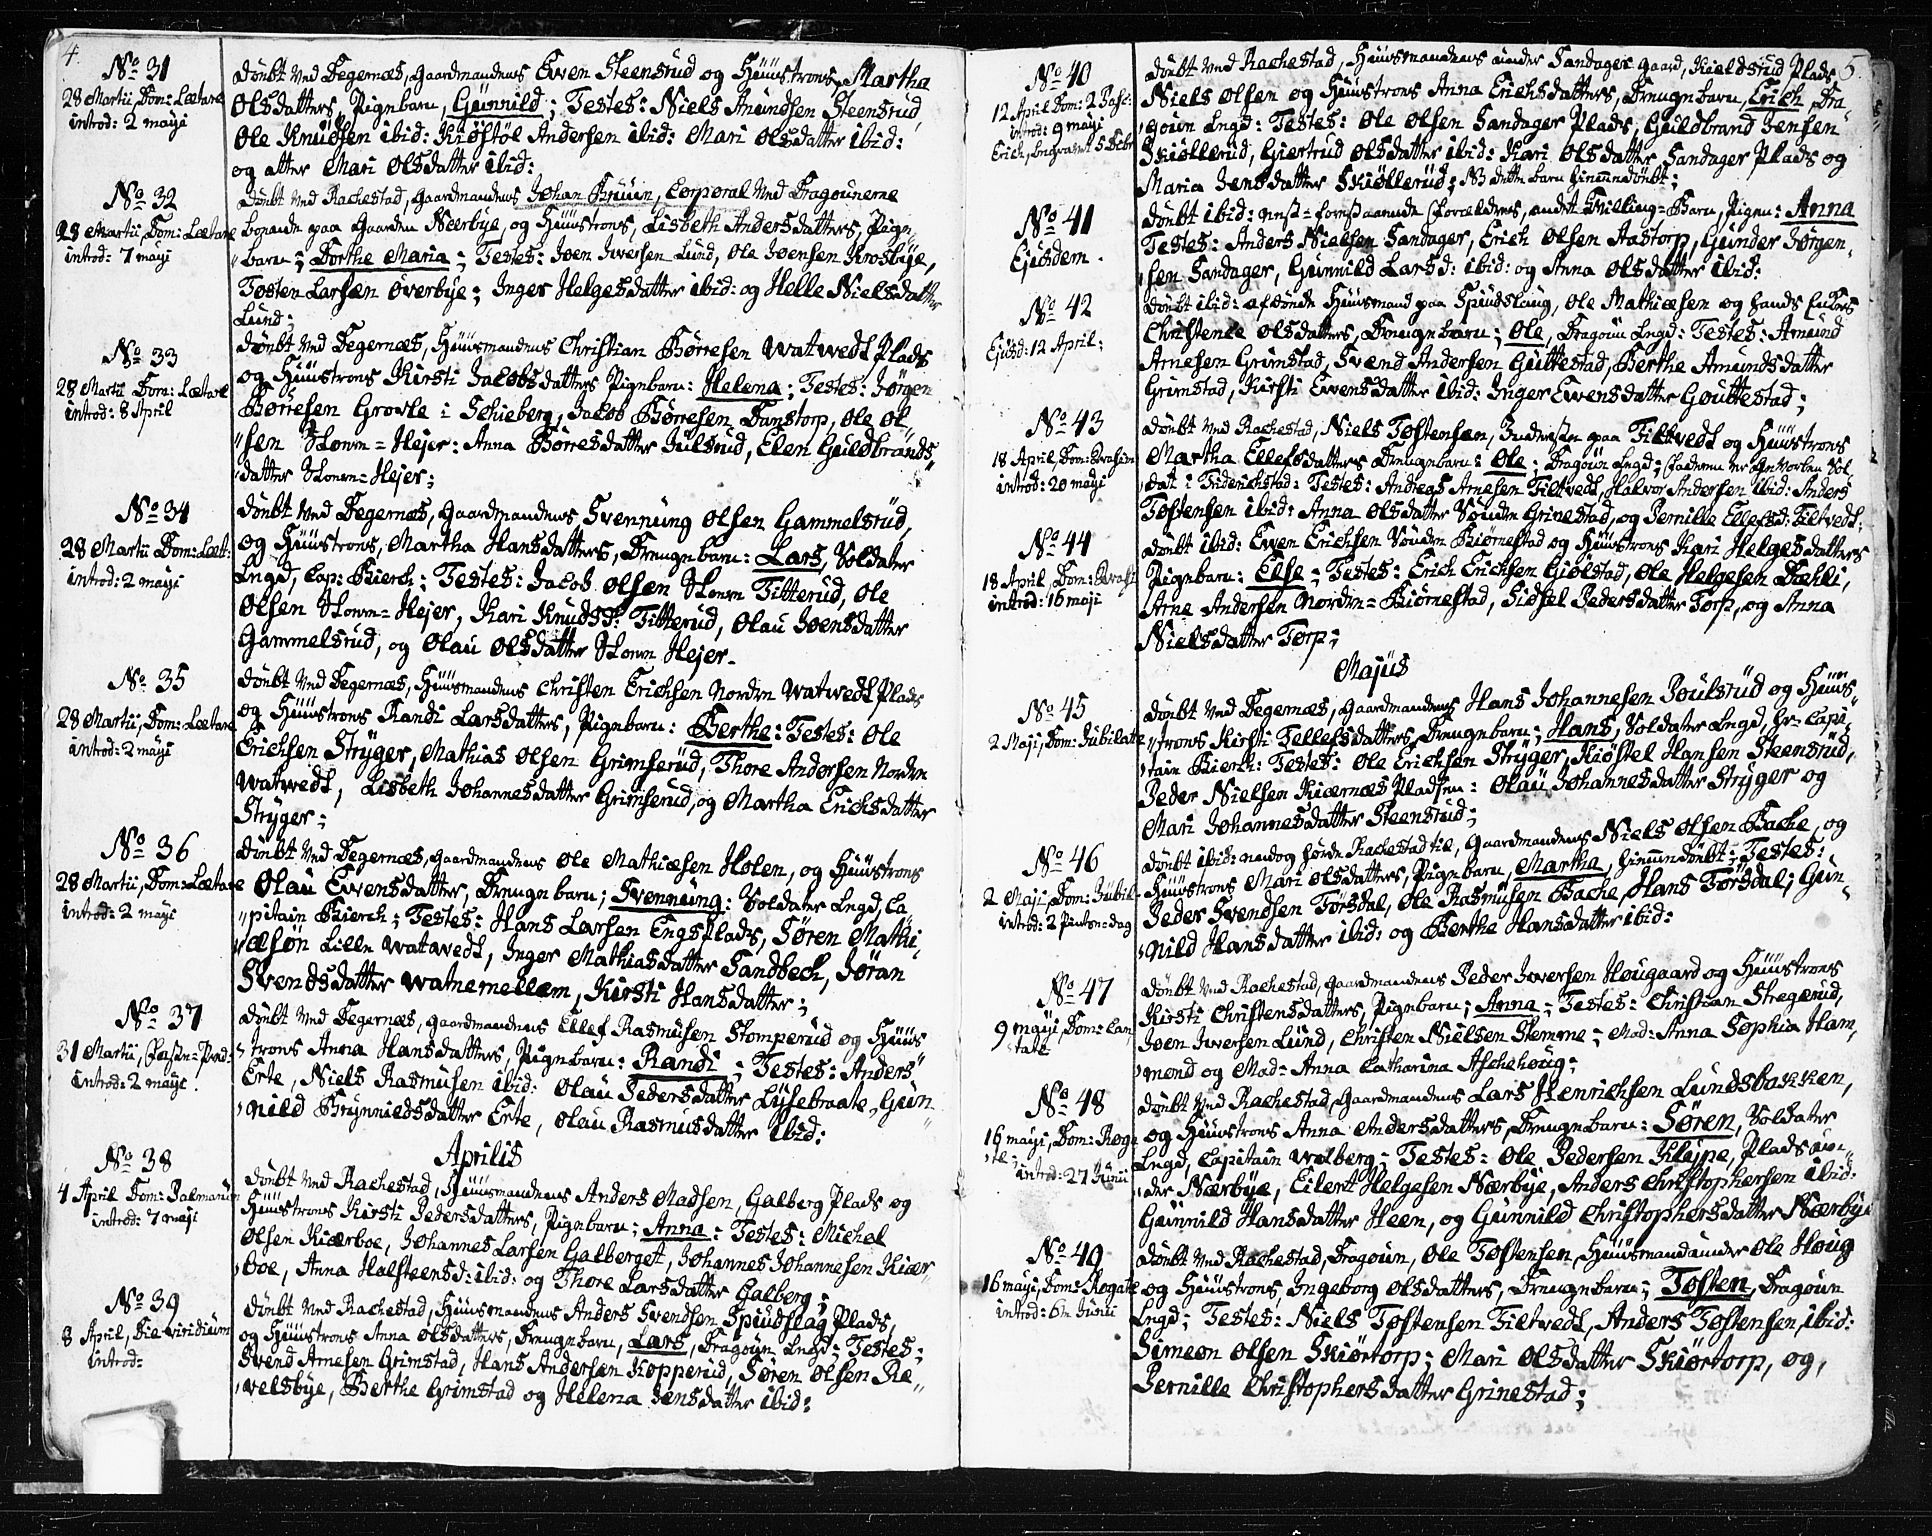 4.
No 31
28 Martii, Dom: Lætare
introd: 2 maji
Døubt ved Degernæs, gaardmandens Ewen Steensrud og Huustrons Martha
Olsdatters, Pigebarn, Günnild; Testes: Niels Amundsen Steensrud,
Ole Knudsen ibid: Kiøstøl Andersen ibid: Mari Olsdatter ibid:
og atter Mari Olsdatter ibid:
No 32
28 Martii, Dom: Lætare
introd: 7 maji
Døubt ved Rachestad, gaardmandens Johan Bruun, Corporal ved Dragounerne
boende paa gaarden Neerbye, og Huustrons, Lisbeth Andersdatters, Pige-
barn; Dorthe Maria; Testes: Joen Iwersen Lund, Ole Joensen Krosbye,
Tosten Larsen Overbye; Inger Helgesdatter ibid: og Helle Nielsdatter
Lund;
No 33
28 Martii Dom: Lætare
introd: 8 April
Døubt ved Degernæs, Huusmandens Christian Børresen Watwedt Plads
og Huustrons Kirsti Jacobsdatters Pigebarn: Helena; Testes: Jørgen
Børresen Growle i Schieberg, Jacob Børresen Danstorp, Ole Ol-
sen Stowr=Hejer: Anna Børresdatter Julsrud, Elen Guldbrands-
datter Stowr=Hejer;
No 34
28 Martii Dom: Læt:
introd: 2 maji
Døubt ved Degernæs, gaardmandens Svennung Olsen Gammelsrud,
og Huustrons, Martha Hansdatters, Drengebarn: Lars, Soldater
Lægd, Cap: Bierch; Testes: Jacob Olsen Stowr Titterud, Ole
Olsen Stowr=Hejer, Kari Knudsd: Titterud, Olau Joensdatter
Gammelsrud, og Olau Olsdatter Stowr Hejer.
No 35
28 Martii, Dom: Lætare
introd: 2 maji
Døubt ved Degernæs, Huusmandens Christen Erichsen Nordre Watwedt Plads
og Huustrons Randi Larsdatters, Pigebarn: Berthe: Testes: Ole
Erichsen Stryger, Mathias Olsen Grimserud, Thore Andersen Nordre
Watwedt, Lisbeth Johannesdatter Grimserud, og Martha Erichsdatter
Stryger;
No 36
28 Martii, Dom: Lætare
introd: 2 maji
Døubt ved Degernæs, gaardmandens Ole Mathiæsen Holen, og Huustrons
Olau Ewensdatter, Drengebarn; Svennung: Soldater Lægd, Ca-
pitain Bierch; Testes: Hans Larsen Engs Plads, Søren Mathi-
æsøn Lille Watwedt, Inger Mathiasdatter Sandbeck, Jøran
Svendsdatter Watnemellem, Kirsti Hansdatter;
No 37
31 Martii,
introd: 2 maji.
Døubt ved Degernæs, gaardmandens Ellef Rasmusen Stomperud og Huus-
trons Anna Hansdatters, Pigebarn: Randi; Testes: Anders
Erte, Niels Rasmusen ibid: Olau Pedersdatter Lysebraate, Gun-
nild Brynnieldsdatter Erte, Olau Rasmusdatter ibid:
Aprilis
No 38
4 April Dom: Palmarum
introd: 7 maji
Døubt ved Rachestad, Huusmandens Anders Madsen, Galberg Plads og
Huustrons Kirsti Pedersdatters, Pigebarn; Anna: Testes: Michel
Olsen Kiærboe, Johannes Larsen Galberget, Johannes Johannesen Kiær-
boe, Anna Halsteensd: ibid: og Thore Larsdatter Galberg;
No 39
8 April, Die viridium
introd:
Døubt ved Rachestad, Huusmandens Anders Svendsen Spiudslag Plads,
og Huustrons Anna Olsdatters, Drengebarn, Lars, Dragoun Lægd; Testes:
Svend Arnesen Grimstad, Hans Andersen Kopperud, Søren Olsen Re-
welsbye, Berthe Grimstad og Helena Jensdatter ibid:
5
No 40
12 April Dom: 2 Pasc:
introd: 9 maji
Døubt ved Rachestad, Huusmandens under Sandager gaard, Kieldsrud Plads
Niels Olsen og Huustrons Anna Erichsdatters, Drengebarn, Erich, Dra-
goun Lægd: Testes: Ole Olsen Sandager Plads, Guldbrand Jensen
Skiøllerud, Giertrud Olsdatter ibid: Kari Olsdatter Sandager Plads og
Maria Jensdatter Skiøllerud; NB dette barn hiemmedøubt;
No 41
Ejusdem.
Døubt ibid: forældrens, andet Tvilling=Barn, Pigen: Anna
Testes: Anders Nielsen Sandager, Erich Olsen Aastorp, Gunder Jørgen-
sen Sandager, Gunnild Larsd: ibid: og Anna Olsdatter ibid:
No 42
Ejusd: 12 April;
Døubt ibid: afdøde Huusmand paa Spiudslaug, Ole Mathiæsen og hands Enkes
Christence Olsdatters, Drengebarn; Ole, Dragoun Lægd: Testes: Amund
Arnesen Grimstad, Svend Andersen Guttestad, Berthe Amundsdatter
Grimstad, Kirsti Ewensdatter ibid: Inger Ewensdatter Gouttestad;
No 43
18 April, Dom: Qvasim:
introd: 20 maji
Døubt ved Rachestad, Niels Tostensen, Inderste paa Tiltvedt og Huustrons
Martha Ellefsdatters Drengebarn: Ole; Dragoun Lægd; faderen er gevorben Sol-
dat i Friderichstad: Testes: Andreas Arnesen Tiltvedt, Halvor Andersen ibid: Anders
Tostensen ibid: Anna Olsdatter Søndre Grinestad, og Pernille Ellefsd: Tiltvedt;
No 44
18 April, Dom: Qvasi
introd: 16 maji
Døubt ibid: Ewen Erichsen Søndre Biørnestad og Huustrons Kari Helgesdatters
Pigebarn: Else; Testes: Erich Erichsen Giølstad, Ole Helgesen Bækli,
Arne Andersen Nordre=Biørnestad, Sidsel Pedersdatter Torp, og Anna
Nielsdatter Torp;
Majus
No 45
2 Maji, Dom: Jubilate
Døubt ved Degernæs, gaardmandens Hans Johannesen Poulsrud og Huus-
trons Kirsti Tellefsdatters, Drengebarn; Hans, Soldater Lægd, Hr: Capi-
tain Bierch: Testes: Ole Erichsen Stryger, Kiøstel Hansen Steensrud,
Peder Nielsen Kiærnæs Pladsen: Olau Johannesdatter Stryger og
Mari Johannesdatter Steensrud;
No 46
2 Maji, Dom: Jubil:
introd: 2 Pintse=dag
Døubt ibid: nendog hørde Rachestad til, gaardmandens Niels Olsen Bache, og
Huustrons Mari Olsdatters, Pigebarn, Marthe, hiemmedøubt; Testes:
Peder Svendsen Torsdal, Ole Rasmusen Bache, Hans Torsdal; Gun-
nild Hansdatter ibid: og Berthe Hansdatter ibid:
No 47
9 maji, Dom: Can-
tate
Døubt ved Rachestad, gaardmandens Peder Iwersen Hougaard og Huustrons
Kirsti Christensdatters, Pigebarn; Anna; Testes: Christian Stregerud,
Joen Iwersen Lund, Christen Nielsen Stemme; Mad: Anna Sophia Ham-
mond og Mad: Anna Catharina Aschehoug;
No 48
16 maji, Dom: Roga-
te;
introd: 27 Junii
Døubt ved Rachestad, gaardmandens Lars Henrichsen Lundsbakken,
og Huustrons Anna Andersdatters, Drengebarn: Søren, Soldater
Lægd, Capitain Walberg; Testes: Ole Pedersen Kleppe, Plads un-
der Nærbye, Eilert Helgesen Nærbye, Anders Christophersen ibid:
Gunnild Hansdatter Heen, og Gunnild Christophersdatter Nærbye
No 49
16 maji, Dom: Rogate
introd: 6te Junii
Døubt ved Rachestad, Dragoun, Ole Tostensen, Huusmand under Ole Houg
og Huustrons, Ingeborg Olsdatters, Drengebarn; Tosten, Dragoun
Lægd; Testes: Niels Tostensen Tiltvedt, Anders Tostensen, ibid:
Simeon Olsen Skiørtorp; Mari Olsdatter Skiørtorp, og,
Pernille Christophersdatter Grinestad;